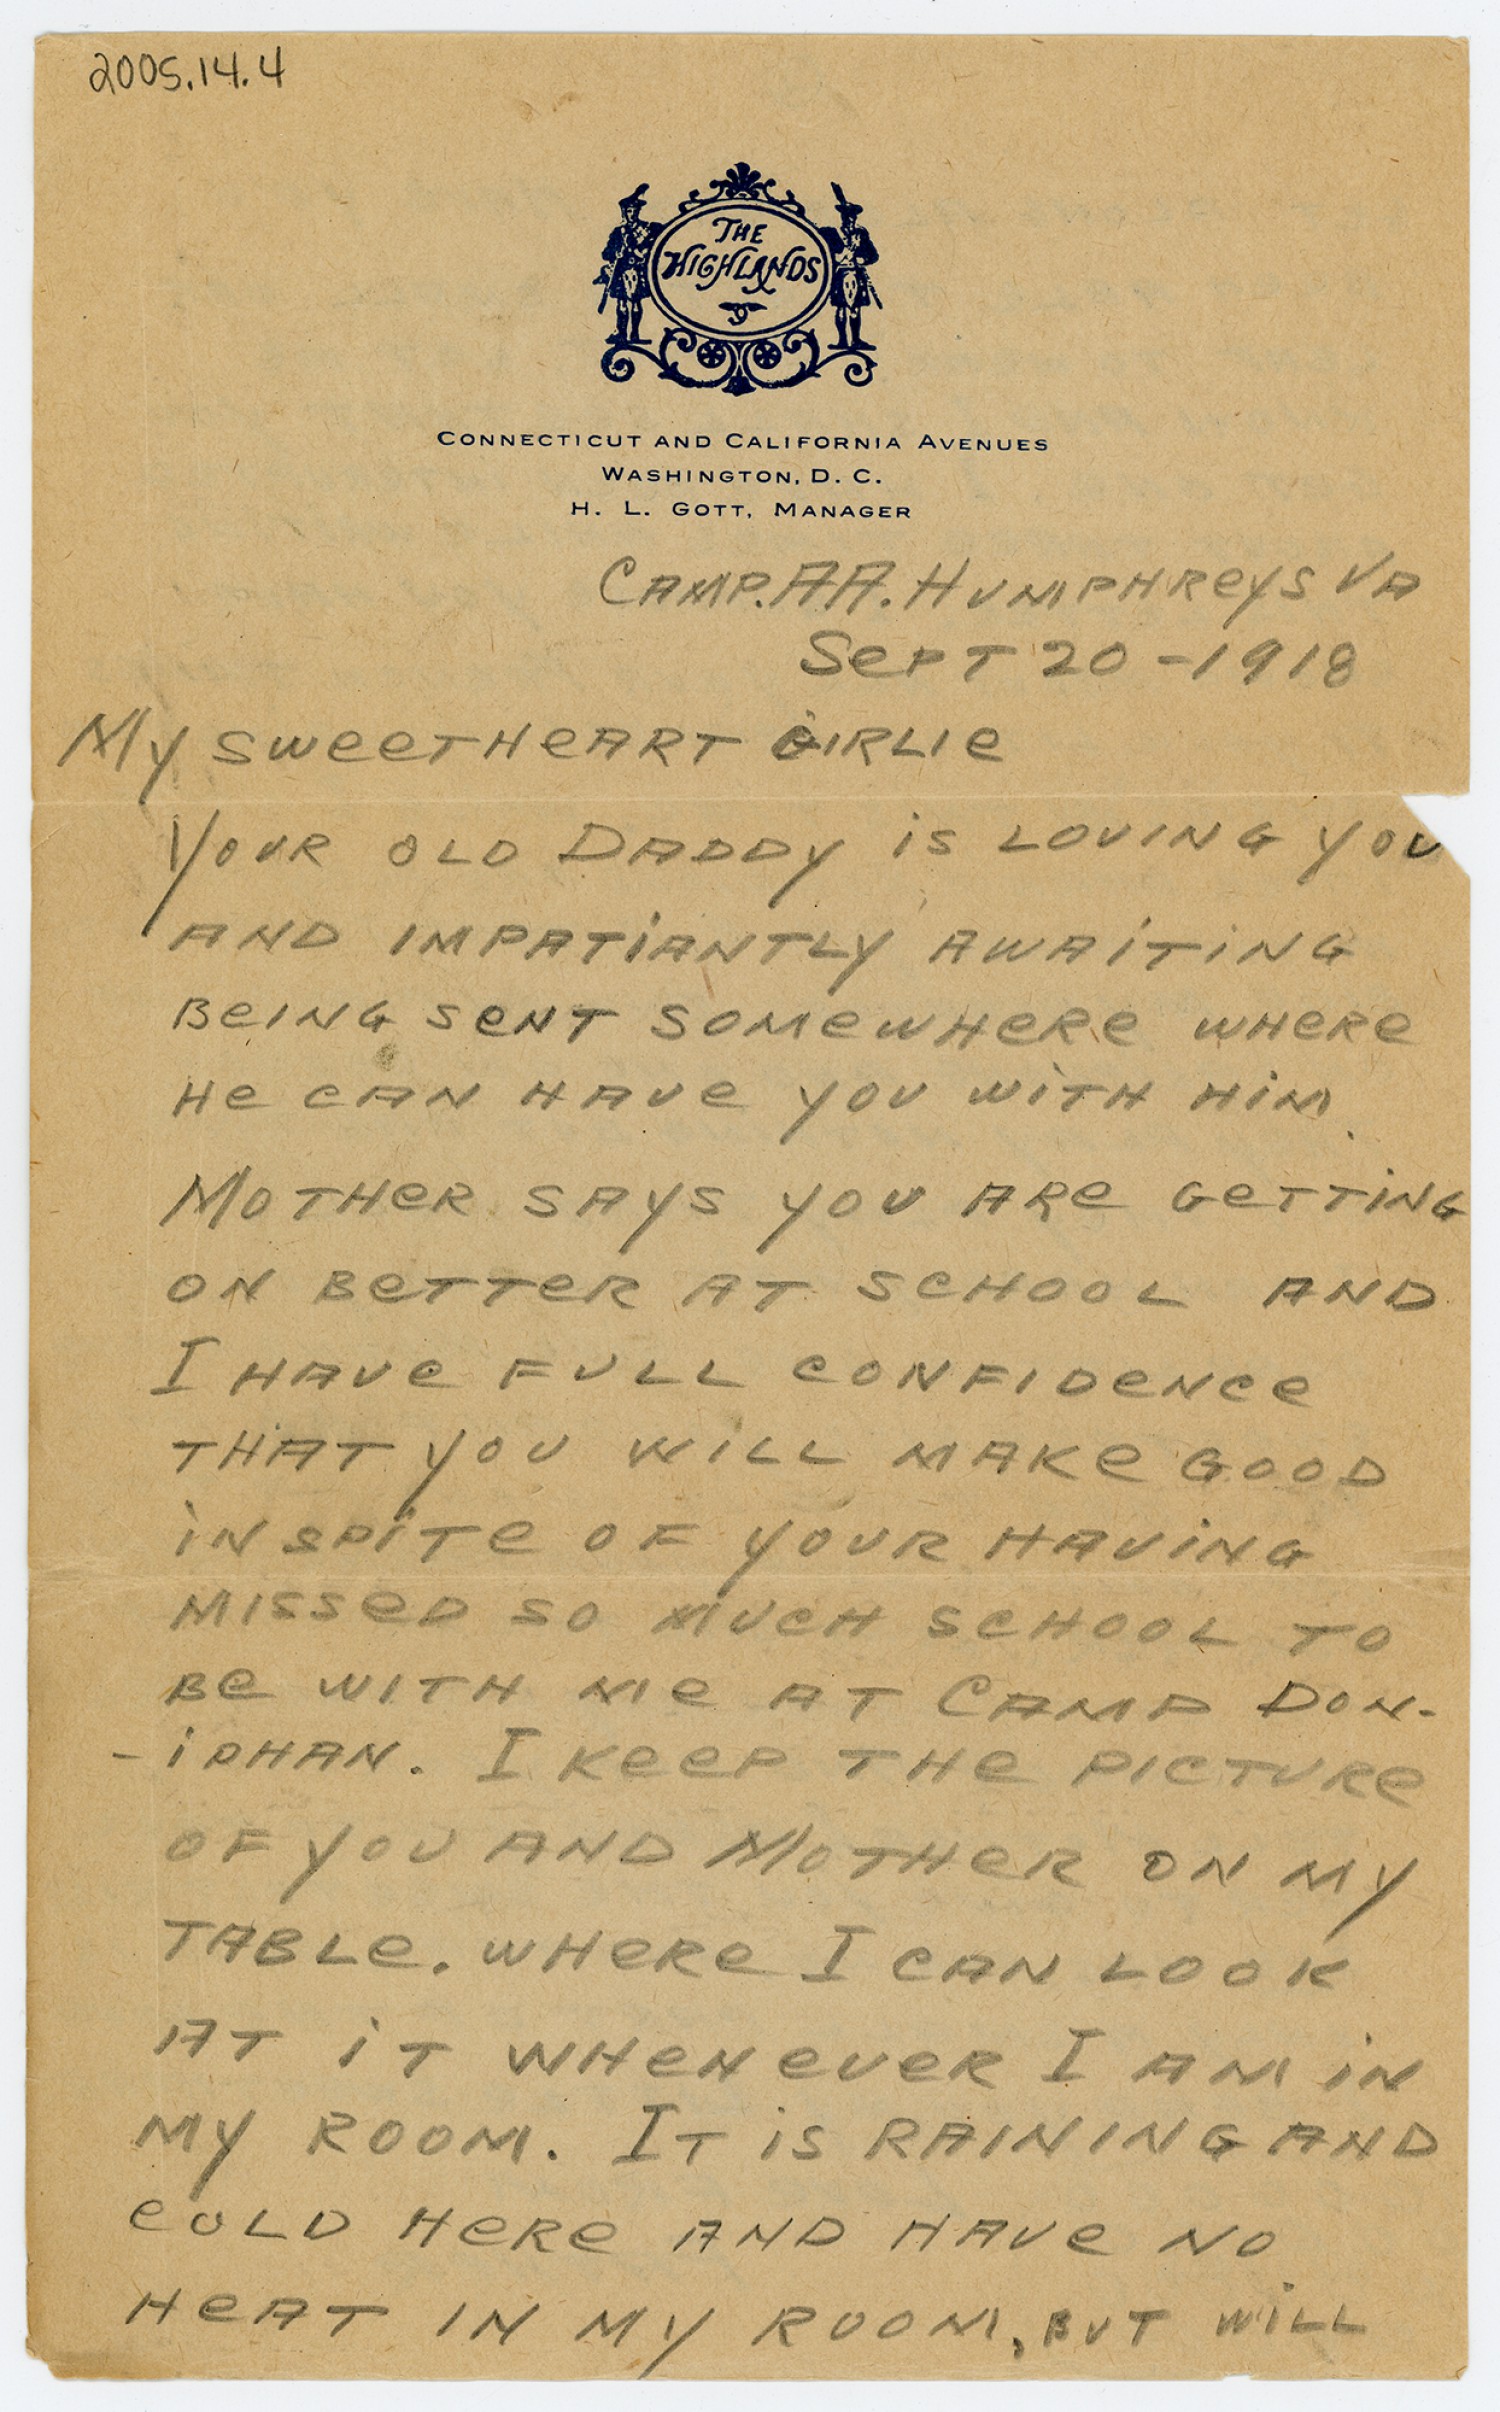 2005.14.4
THE
HIGHLANDS
CONNECTICUT AND CALIFORNIA AVENUES
WASHINGTON, D. C.
H. L. GOTT, MANAGER
CAMP. AA. HUMPHREYS VA
SEPT 20 - 1918
MY SWEETHEART GIRLIE
YOUR OLD DADDY IS LOVING YOU
AND IMPATIANTLY AWAITING
BEING SENT SOMEWHERE WHERE
HE CAN HAVE YOU WITH HIM.
MOTHER SAYS YOU ARE GETTING
ON BETTER AT SCHOOL AND
I HAVE FULL CONFIDENCE
THAT YOU WILL MAKE GOOD
IN SPITE OF YOUR HAVING
MISSED SO MUCH SCHOOL TO
BE WITH ME AT CAMP DON-
-IPHAN. I KEEP THE PICTURE
OF YOU AND MOTHER ON MY
TABLE. WHERE I CAN LOOK
AT IT WHENEVER I AM IN
MY ROOM. IT IS RAINING AND
COLD HERE AND HAVE NO
HEAT IN MY ROOM, BUT WILL